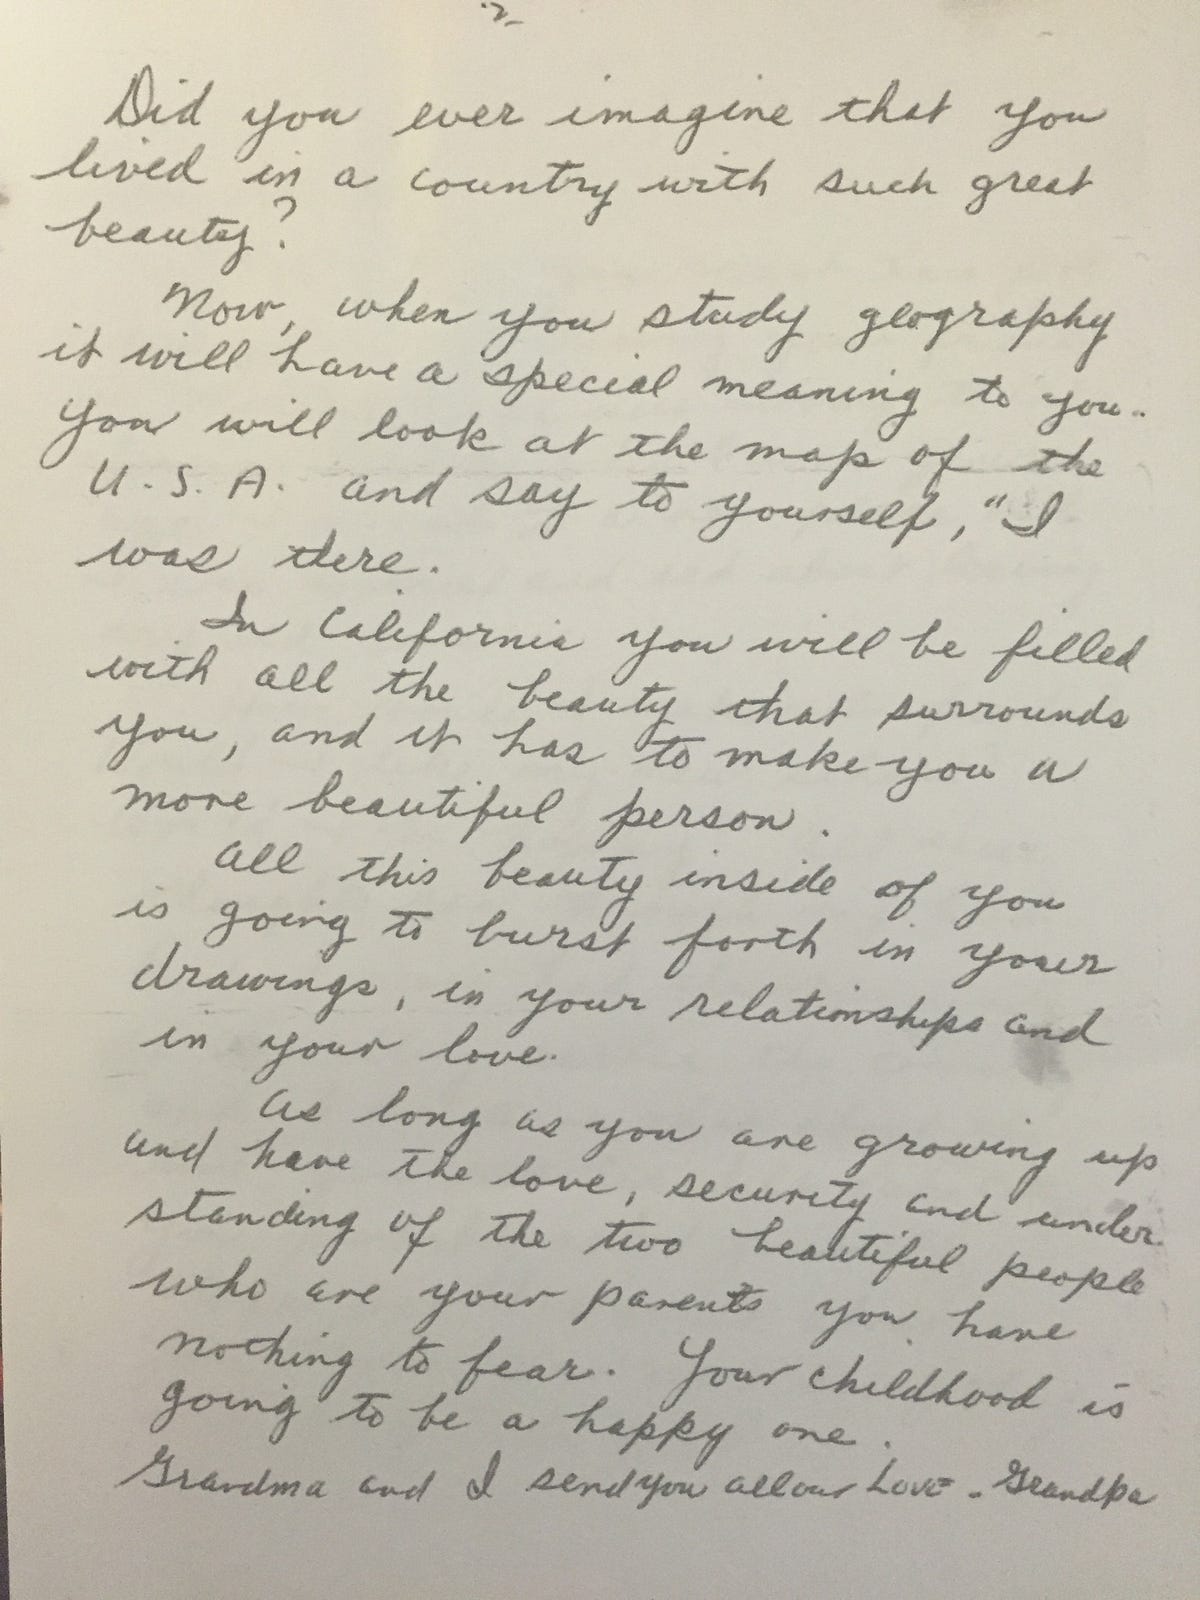 -2-
Did you ever imagine that you
lived in a country with such great
beauty?
Now, when you study geography
it will have a special meaning to you.
You will look at the map of the
U.S.A. and say to yourself, "I
was there.
In California you will be filled
with all the beauty that surrounds
you, and it has to make you a
more beautiful person.
All this beauty inside of you
is going to burst forth in your
drawings, in your relationships and
in your love.
As long as you are growing up
and have the love, security and under-
standing of the two beautiful people
who are your parents you have
nothing to fear. Your childhood is
going to be a happy one.
Grandma and I send you all our Love - Grandpa